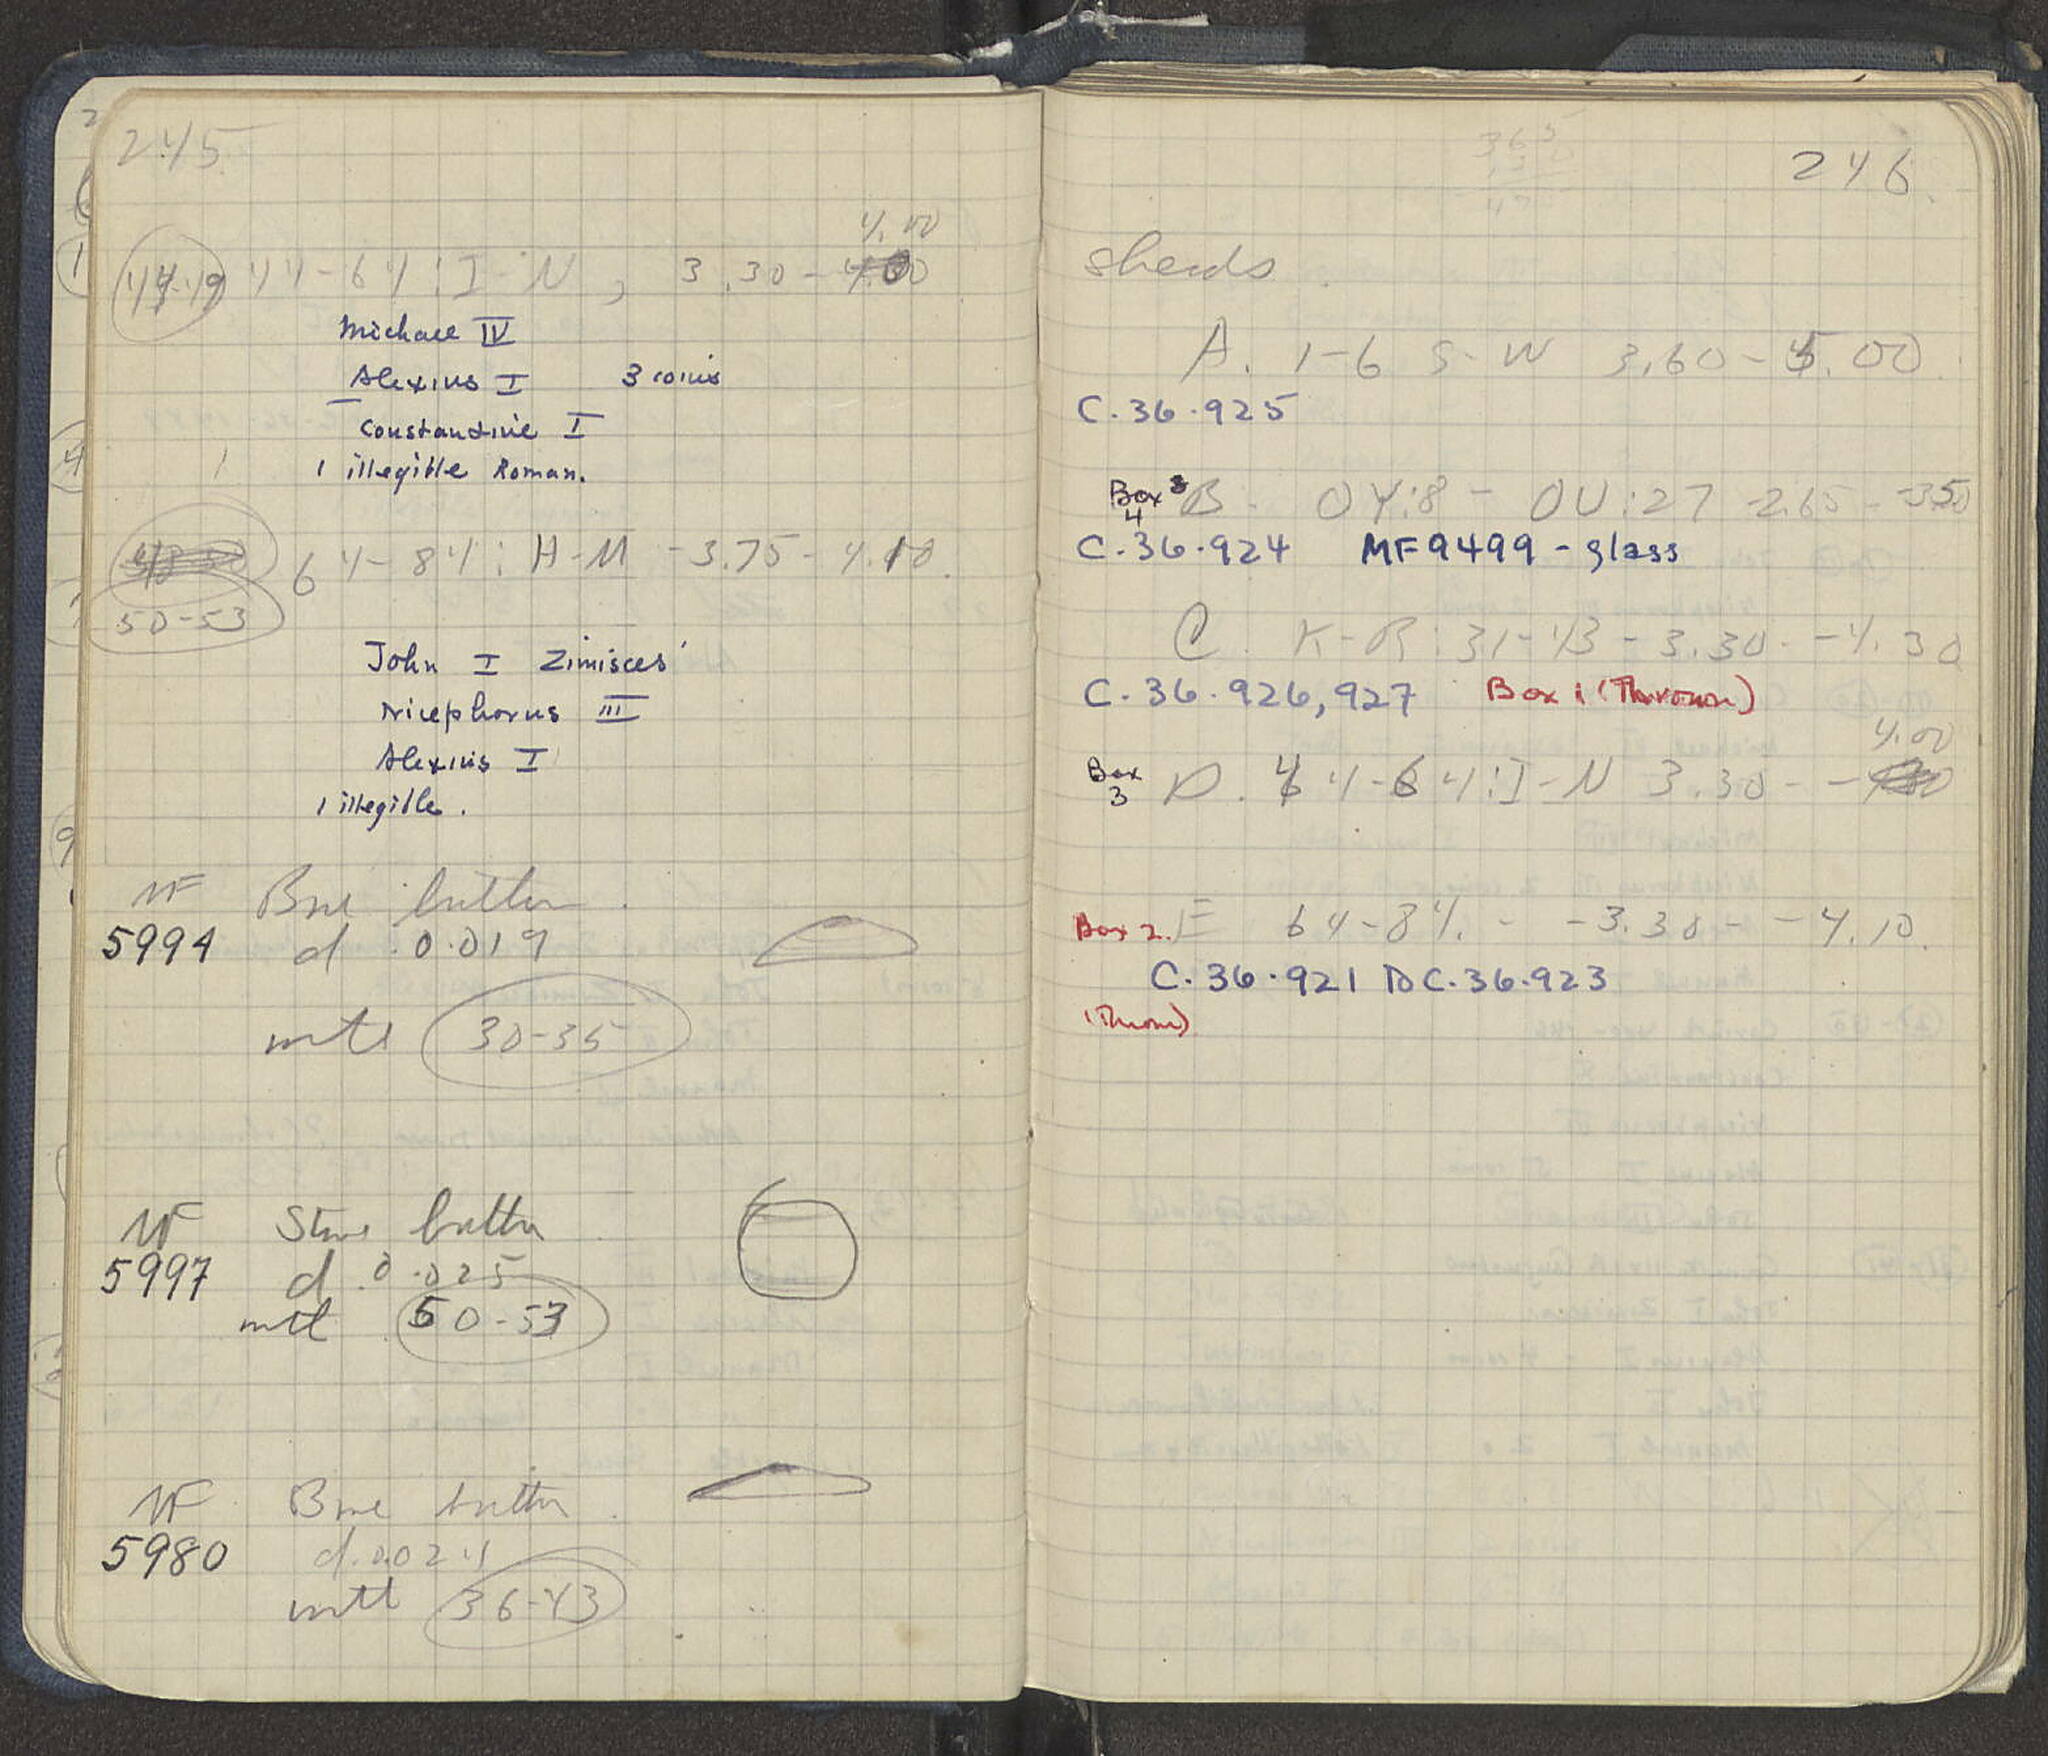 245
4.00
44-49 44-64:I-N, 3.30-
Michael IV
Alexius I 3 coins
Constantine I
1 1 illegible Roman.
64-84: H-M -3.75-4.10.
50-53
John I Zimisces
Nicephorus III
Alexius I
1 illegible.
MF Bne button.
5994 d .0.019
mtl 30-35
MF Stone button
5997 d 0.025
mtl 50-53
MF Bne button.
5980 d.0.024
mtl 36-43
246.
365
sherds
A. 1-6 S-W 3.60-5.00
C.36.925
Box 4 B - OY:8 - OU:27 -2.65 - -3.50
C.36.924 MF9499-glass
C. K-R:31-43 -3.30 - -4.30
C.36.926,927 Box 1 (Thrown)
4.00
Box 3 D. 44-64:I-N 3.30 - -
Box 2. E 64-84. - -3.30 - -4.10.
C.36.921 TO C.36.923
(Thrown)